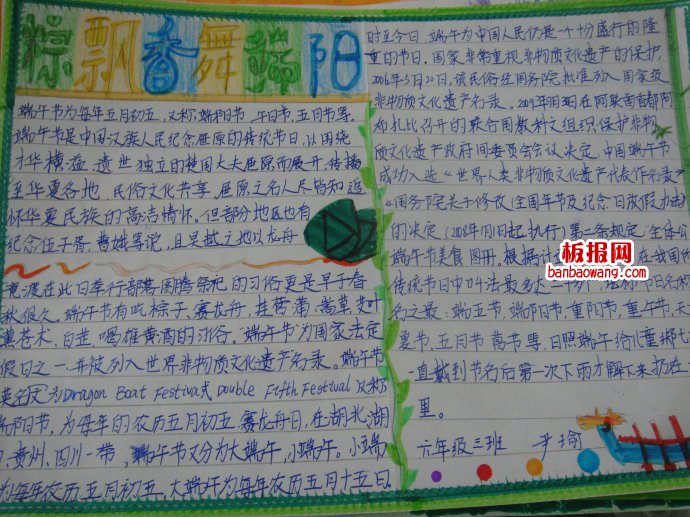 粽飘香舞端阳
端午节为每年五月初五,又称端阳节、午日节、五月节等。
端午节是中国汉族人民纪念屈原的传统节日,以围绕
才华横溢、遗世独立的楚国大夫屈原而展开,传播
至华夏各地,民俗文化共享,屈原之名人尽皆知,追
怀华夏民族的高洁情怀。但部分地区也有
纪念伍子胥、曹娥等说,且吴越之地以龙舟
竞渡在此日举行部落图腾祭祀的习俗更是早于春
秋很久。端午节有吃粽子,赛龙舟,挂菖蒲、蒿草、艾叶
薰苍术、白芷,喝雄黄酒的习俗。"端午节"为国家法定
假日之一,并被列入世界非物质文化遗产名录。端午节
英名又为Dragon Boat Festival或Double Fifth Festival又称
端阳节,为每年的农历五月初五 赛龙舟日,在湖北、湖
、贵州、四川一带,端午节又分为大端午、小端午。小端
为每年农历五月初五,大端午为每年农历五月十五日。
时至今日,端午为中国人民仍是一个十分盛行的隆
重的节日。国家非常重视非物质文化遗产的保护,
2006年5月20日,该民俗经国务院批准列入国家级
非物质文化遗产名录。2009年 在阿联酋首都阿
布扎比召开的联合国教科文组织保护非物
质文化遗产政府间委员会会议决定,中国端午节
成功入选"世界人类非物质文化遗产代表作名录"
《国务院关于修改〈全国年节及纪念日放假办法〉
的决定(2008年1月1日起执行)第二条规定,全体公
端午节美食图册。根据 在我国
传统节日中叫法最多 节日名
名之最:端五节、端阳节、重阳节、重午节、天
节、五月节、菖节等。日照端午给儿童绑七
一直戴到节名后第一次下雨才解下来扔在
里。
六年级三班 尹瑜
板报网
banbaowang.com